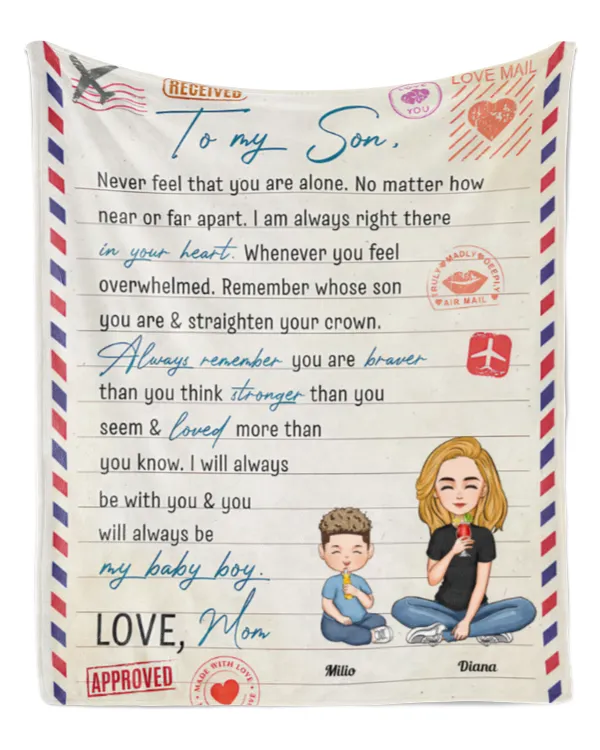 RECEIVED
LOVE MAIL
YOU
To my Son,
Never feel that you are alone. No matter how
near or far apart. I am always right there
in your heart. Whenever you feel
overwhelmed. Remember whose son
you are & straighten your crown.
TRULY MADLY DEEPLY
AIR MAIL
Always remember you are braver
than you think stronger than you
seem & loved more than
you know. I will always
be with you & you
will always be
my baby boy.
LOVE, Mom
Milio
Diana
APPROVED
MADE WITH LOVE